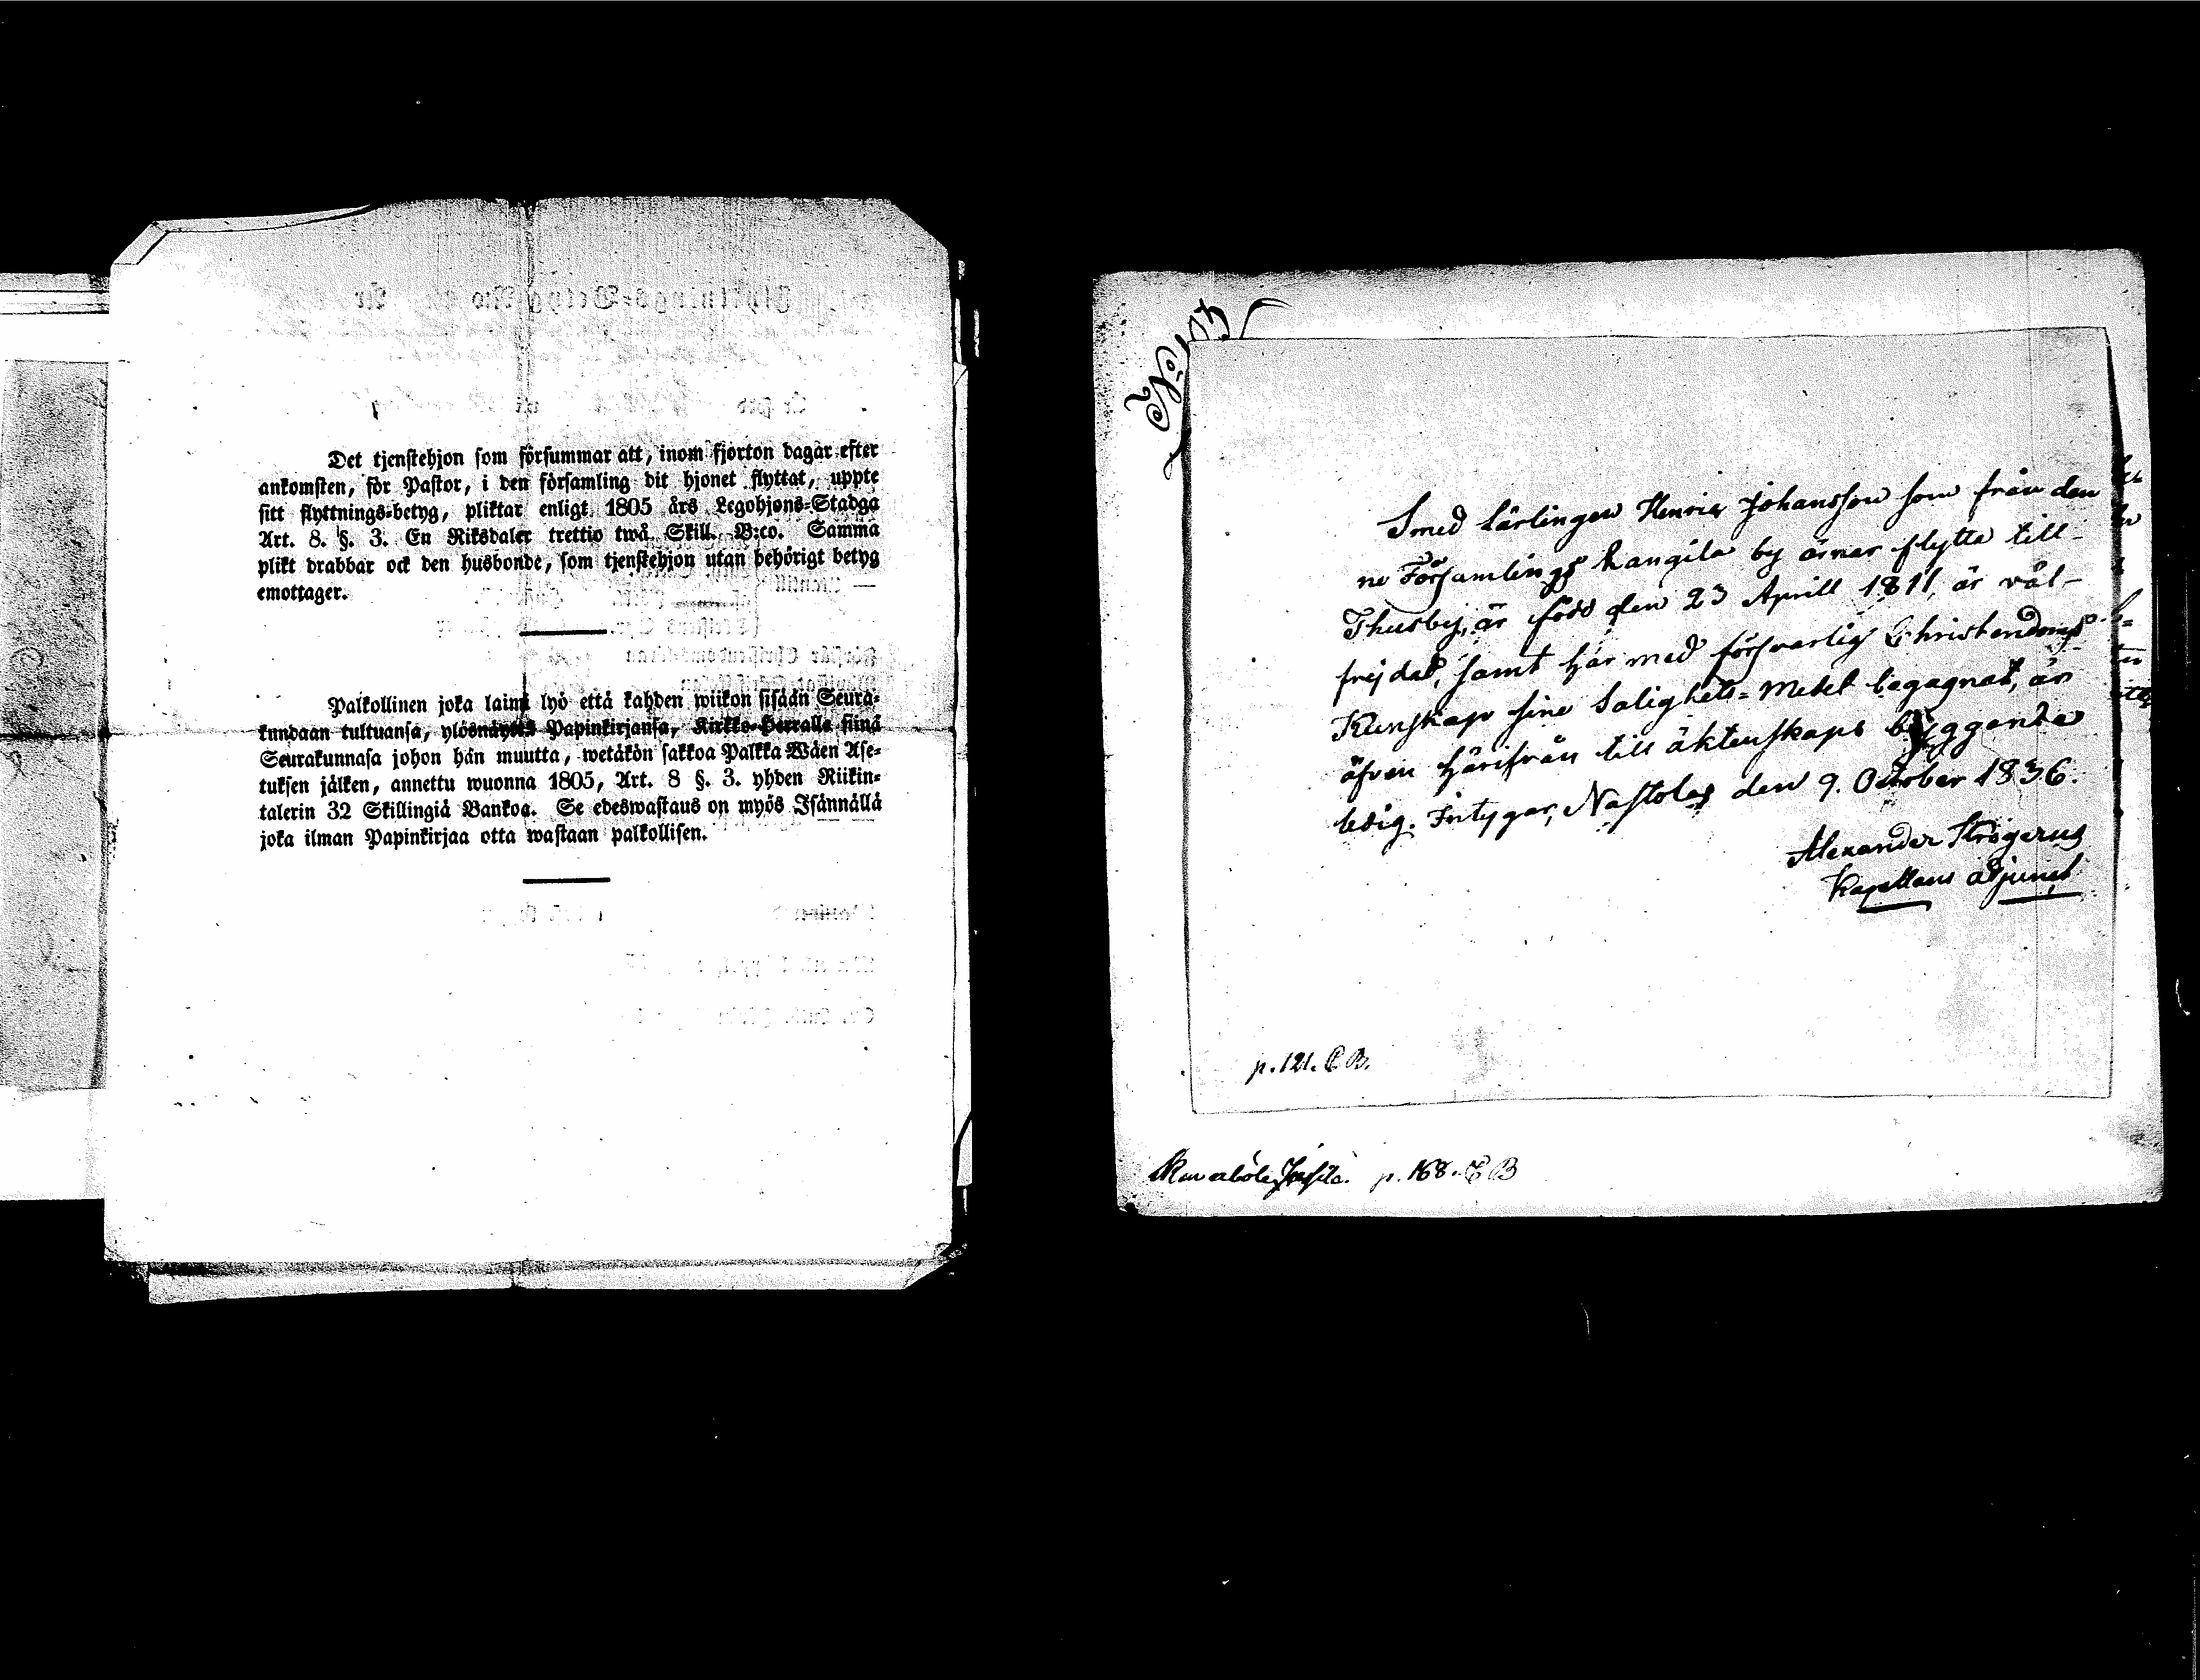 Det tjenstehjon som försummar att, inom fjorton dagar efter
ankomsten, för Pastor, i den församling dit hjonet flyttat, uppte
sitt flyttnings-betyg, pliktar enligt 1805 års Legohjons-Stadga
Art. 8. §. 3. En Riksdaler trettio twå Skill. B:co. Samma
plikt drabbar ock den husbonde, som tjenstehjon utan behörigt betyg
emottager.
Palkollinen joka laimi lyö että kahden wiikon sisään Seura-
kundaan tultuansa, ylösnäyttä Papinkirjansa, Kirkko-Herralle siinä
Seurakunnasa johon hän muutta, wetäkön sakkoa Palkka Wäen Ase-
tuksen jälken, annettu wuonna 1805, Art. 8 §. 3. yhden Riikin-
talerin 32 Skillingiä Bankoa. Se edeswastaus on myös Isännällä
joka ilman Papinkirjaa otta wastaan palkollisen.
Smed Lärlingen Henric Johansson som från den
ne Församlings Kangila by ärnar flytta till
Thusby, är född den 23 Aprill 1811, är väl-
frejdad, samt har med försvarlig Christendoms
Kunskap sine Salighets-Medel begagnat, är
äfven härifrån till äktenskaps byggande
ledig. Intygar, Nastola den 9. October 1836.
Alexander Strögerus
Kapellans adjunct
p. 121. C B.
p. 168. C B